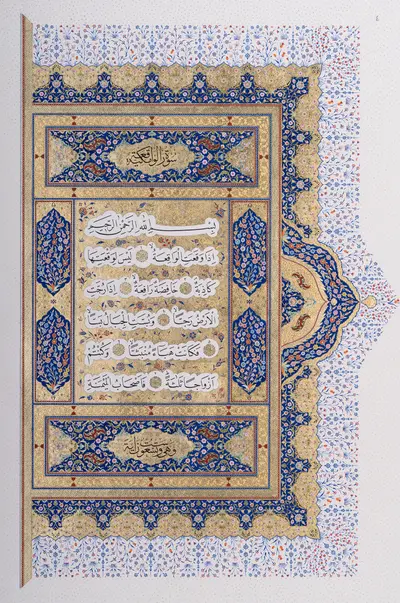 سورة الواقعة
بسم الله الرحمن الرحيم
إذا وقعت الواقعة ليس لوقعتها
كاذبة خافضة رافعة إذا رجت
الأرض رجا وبست الجبال بسا
فكانت هباء منبثا وكنتم
أزواجا ثلاثة فأصحاب الميمنة
وهي ست وتسعون آية